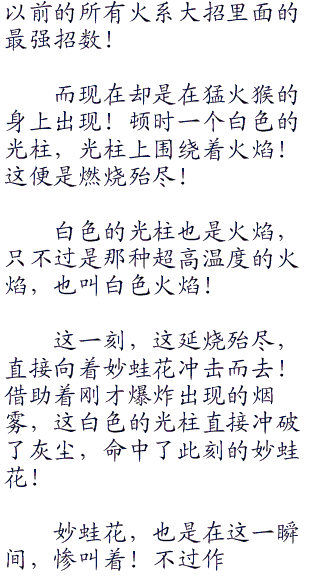 以前的所有火系大招里面的
最强招数！
而现在却是在猛火猴的
身上出现！顿时一个白色的
光柱，光柱上围绕着火焰！
这便是燃烧殆尽！
白色的光柱也是火焰，
只不过是那种超高温度的火
焰，也叫白色火焰！
这一刻，这延烧殆尽，
直接向着妙蛙花冲击而去！
借助着刚才爆炸出现的烟
雾，这白色的光柱直接冲破
了灰尘，命中了此刻的妙蛙
花！
妙蛙花，也是在这一瞬
间，惨叫着！不过作